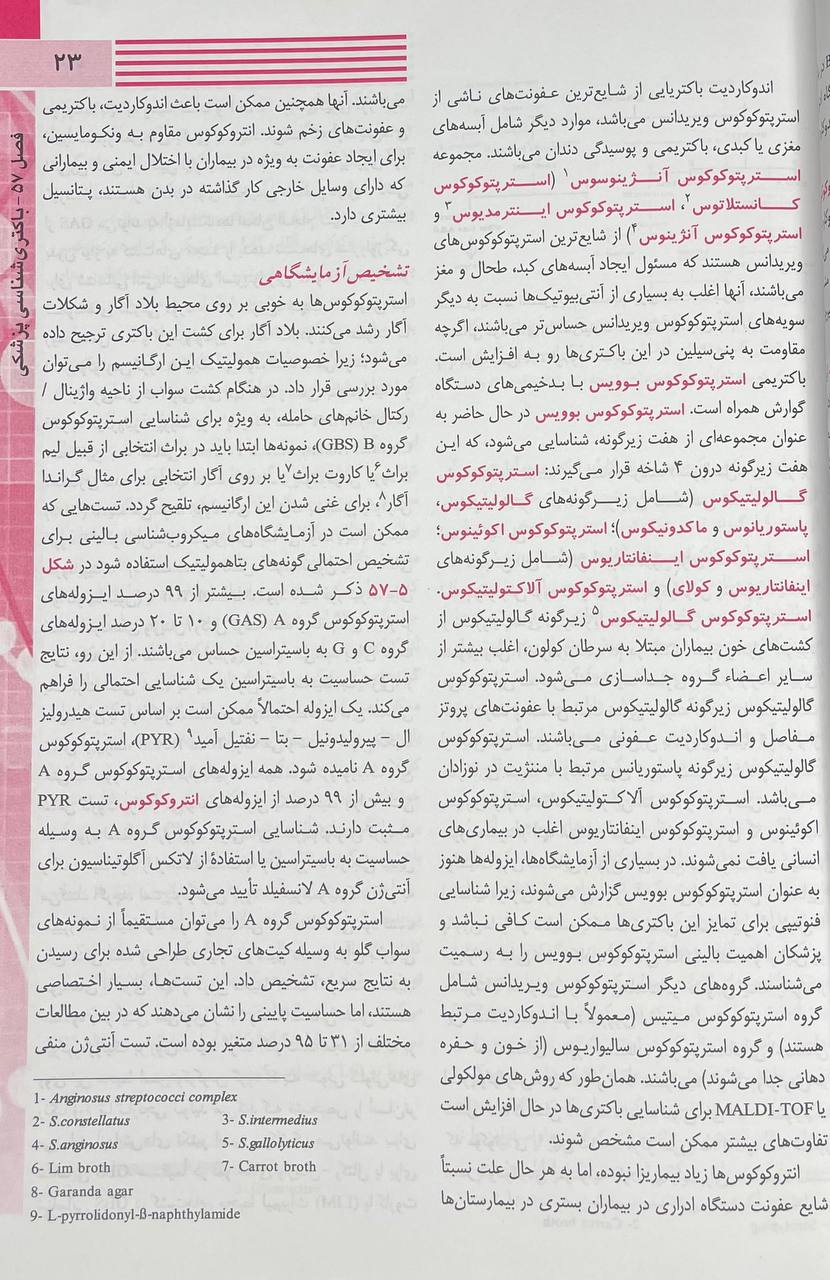 ۲۳
فصل ۵۷ - باکتری‌شناسی پزشکی
اندوکاردیت باکتریایی از شایع‌ترین عفونت‌های ناشی از
استرپتوکوکوس ویریدانس می‌باشد، موارد دیگر شامل آبسه‌های
مغزی یا کبدی، باکتریمی و پوسیدگی دندان می‌باشند. مجموعه
استرپتوکوکوس آنژینوسوس۱ (استرپتوکوکوس
کانستلاتوس۲، استرپتوکوکوس اینترمدیوس۳ و
استرپتوکوکوس آنژینوس۴) از شایع‌ترین استرپتوکوکوس‌های
ویریدانس هستند که مسئول ایجاد آبسه‌های کبد، طحال و مغز
می‌باشند، آنها اغلب به بسیاری از آنتی‌بیوتیک‌ها نسبت به دیگر
سویه‌های استرپتوکوکوس ویریدانس حساس‌تر می‌باشند، اگرچه
مقاومت به پنی‌سیلین در این باکتری‌ها رو به افزایش است.
باکتریمی استرپتوکوکوس بوویس با بدخیمی‌های دستگاه
گوارش همراه است. استرپتوکوکوس بوویس در حال حاضر به
عنوان مجموعه‌ای از هفت زیرگونه، شناسایی می‌شود، که این
هفت زیرگونه درون ۴ شاخه قرار می‌گیرند: استرپتوکوکوس
گالولیتیکوس (شامل زیرگونه‌های گالولیتیکوس،
پاستوریانوس و ماکدونیکوس)؛ استرپتوکوکوس اکوئینوس؛
استرپتوکوکوس اینفانتاریوس (شامل زیرگونه‌های
اینفانتاریوس و کولای) و استرپتوکوکوس آلاکتولیتیکوس.
استرپتوکوکوس گالولیتیکوس۵ زیرگونه گالولیتیکوس از
کشت‌های خون بیماران مبتلا به سرطان کولون، اغلب بیشتر از
سایر اعضاء گروه جداسازی می‌شود. استرپتوکوکوس
گالولیتیکوس زیرگونه گالولیتیکوس مرتبط با عفونت‌های پروتز
مفاصل و اندوکاردیت عفونی می‌باشند. استرپتوکوکوس
گالولیتیکوس زیرگونه پاستوریانس مرتبط با مننژیت در نوزادان
می‌باشد. استرپتوکوکوس آلاکتولیتیکوس، استرپتوکوکوس
اکوئینوس و استرپتوکوکوس اینفانتاریوس اغلب در بیماری‌های
انسانی یافت نمی‌شوند. در بسیاری از آزمایشگاه‌ها، ایزوله‌ها هنوز
به عنوان استرپتوکوکوس بوویس گزارش می‌شوند، زیرا شناسایی
فنوتیپی برای تمایز این باکتری‌ها ممکن است کافی نباشد و
پزشکان اهمیت بالینی استرپتوکوکوس بوویس را به رسمیت
می‌شناسند. گروه‌های دیگر استرپتوکوکوس ویریدانس شامل
گروه استرپتوکوکوس میتیس (معمولاً با اندوکاردیت مرتبط
هستند) و گروه استرپتوکوکوس سالیواریوس (از خون و حفره
دهانی جدا می‌شوند) می‌باشند. همان‌طور که روش‌های مولکولی
یا MALDI-TOF برای شناسایی باکتری‌ها در حال افزایش است
تفاوت‌های بیشتر ممکن است مشخص شوند.
انتروکوکوس‌ها زیاد بیماریزا نبوده، اما به هر حال علت نسبتاً
شایع عفونت دستگاه ادراری در بیماران بستری در بیمارستان‌ها
می‌باشند. آنها همچنین ممکن است باعث اندوکاردیت، باکتریمی
و عفونت‌های زخم شوند. انتروکوکوس مقاوم به ونکومایسین،
برای ایجاد عفونت به ویژه در بیماران با اختلال ایمنی و بیمارانی
که دارای وسایل خارجی کار گذاشته در بدن هستند، پتانسیل
بیشتری دارد.
تشخیص آزمایشگاهی
استرپتوکوکوس‌ها به خوبی بر روی محیط بلاد آگار و شکلات
آگار رشد می‌کنند. بلاد آگار برای کشت این باکتری ترجیح داده
می‌شود؛ زیرا خصوصیات همولیتیک این ارگانیسم را می‌توان
مورد بررسی قرار داد. در هنگام کشت سواب از ناحیه واژینال /
رکتال خانم‌های حامله، به ویژه برای شناسایی استرپتوکوکوس
گروه B (GBS)، نمونه‌ها ابتدا باید در براث انتخابی از قبیل لیم
براث۶ یا کاروت براث۷ یا بر روی آگار انتخابی برای مثال گراندا
آگار۸، برای غنی شدن این ارگانیسم، تلقیح گردد. تست‌هایی که
ممکن است در آزمایشگاه‌های میکروب‌شناسی بالینی برای
تشخیص احتمالی گونه‌های بتاهمولیتیک استفاده شود در شکل
۵-۵۷ ذکر شده است. بیشتر از ۹۹ درصد ایزوله‌های
استرپتوکوکوس گروه A (GAS) و ۱۰ تا ۲۰ درصد ایزوله‌های
گروه C و G به باسیتراسین حساس می‌باشند. از این رو، نتایج
تست حساسیت به باسیتراسین یک شناسایی احتمالی را فراهم
می‌کند. یک ایزوله احتمالاً ممکن است بر اساس تست هیدرولیز
ال - پیرولیدونیل - بتا - نفتیل آمید۹ (PYR)، استرپتوکوکوس
گروه A نامیده شود. همه ایزوله‌های استرپتوکوکوس گروه A
و بیش از ۹۹ درصد از ایزوله‌های انتروکوکوس، تست PYR
مثبت دارند. شناسایی استرپتوکوکوس گروه A به وسیله
حساسیت به باسیتراسین یا استفادهٔ از لاتکس آگلوتیناسیون برای
آنتی‌ژن گروه A لانسفیلد تأیید می‌شود.
استرپتوکوکوس گروه A را می‌توان مستقیماً از نمونه‌های
سواب گلو به وسیله کیت‌های تجاری طراحی شده برای رسیدن
به نتایج سریع، تشخیص داد. این تست‌ها، بسیار اختصاصی
هستند، اما حساسیت پایینی را نشان می‌دهند که در بین مطالعات
مختلف از ۳۱ تا ۹۵ درصد متغیر بوده است. تست آنتی‌ژن منفی
1- Anginosus streptococci complex
2- S.constellatus 3- S.intermedius
4- S.anginosus 5- S.gallolyticus
6- Lim broth 7- Carrot broth
8- Garanda agar
9- L-pyrrolidonyl-ß-naphthylamide